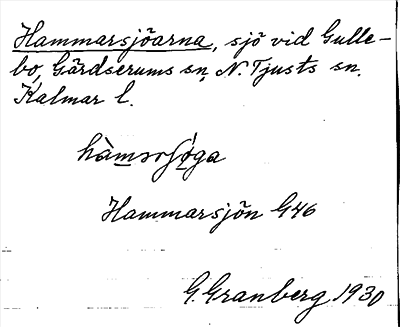 Hammarsjöarna, sjö vid Gulle-
bo, Gärdserums sn, N. Tjusts sn.
Kalmar l.
Hammarsjön G46
G. Granberg 1930